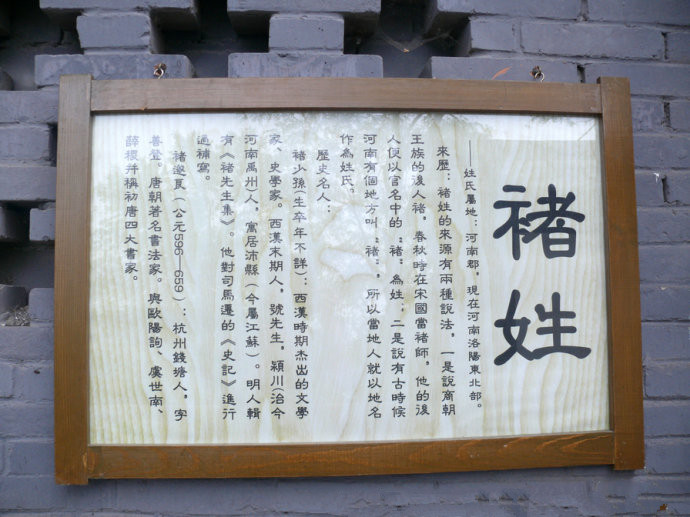 褚姓
——姓氏屬地：河南郡，現在河南洛陽東北部。
來歷：褚姓的來源有兩種說法，一是說商朝
王族的後人褚，春秋時在宋國當褚師，他的後
人便以官名中的“褚”為姓；二是說有古時候
河南有個地方叫“褚”，所以當地人就以地名
作為姓氏。
歷史名人：
褚少孫（生卒年不詳）：西漢時期杰出的文學
家、史學家。西漢末期人，號先生，潁川（治今
河南禹州人，寓居沛縣（今屬江蘇）。明人輯
有《褚先生集》。他對司馬遷的《史記》進行
過補寫。
褚遂良（公元596—659）：杭州錢塘人，字
善登。唐朝著名書法家。與歐陽詢、虞世南、
薛稷并稱初唐四大書家。